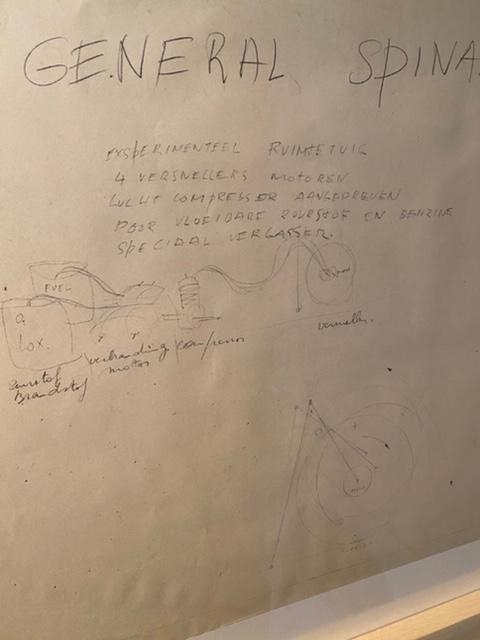 GENERAL SPINA
EXSPERIMENTEEL RUIMTETUIG
4 VERSNELLERS MOTOREN
LUCHT COMPRESSER AANGEDREVEN
DOOR VLOEIBARE ZUURSTOF EN BENZINE
SPECIAAL VERGASSER.
FUEL
Lox.
verbranding compressor
motor
versneller.
zuurstof
Brandstof